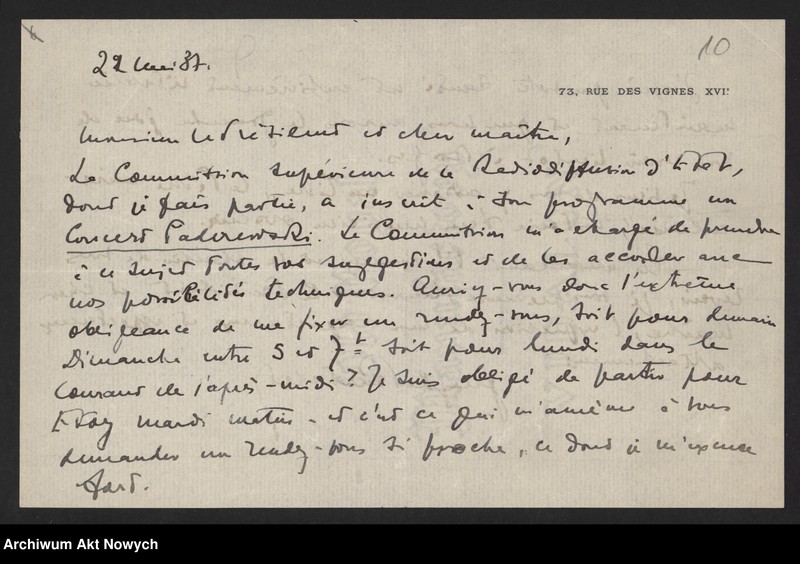 10
22 Mai 37.
73, RUE DES VIGNES. XVIe
Monsieur le Président et cher maître,
La Commission supérieure de la Radiodiffusion d'Etat,
dont je fais partie, a inscrit à son programme un
Concert Paderewski. La Commission m'a chargé de prendre
à ce sujet toutes vos suggestions et de les accorder avec
nos possibilités techniques. Auriez-vous donc l'extrême
obligeance de me fixer un rendez-vous, soit pour demain
Dimanche entre 5 et 7h soit pour lundi dans le
courant de l'après-midi? Je suis obligé de partir pour
mardi matin - et c'est ce qui m'amène à vous
demander un rendez-vous si proche, ce dont je m'excuse
fort.
Archiwum Akt Nowych